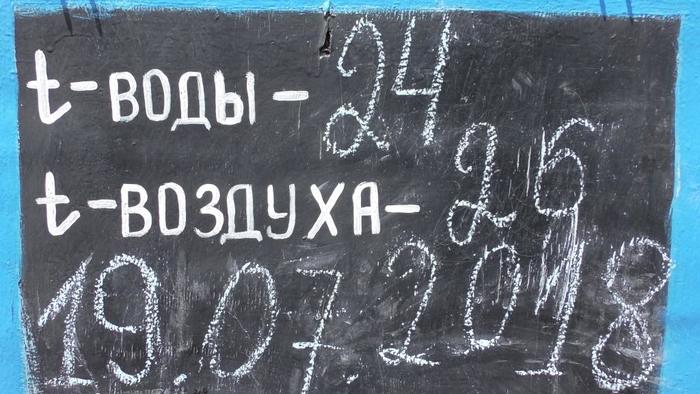 t-ВОДЫ - 24
t-ВОЗДУХА- 25
19.07.2018